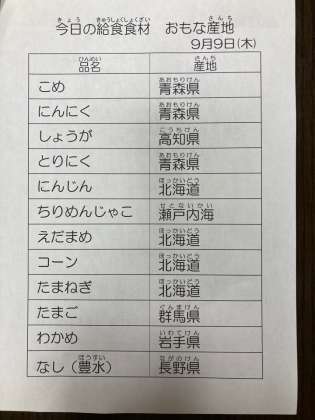 今日の給食食材　おもな産地
9月9日(木)
品名　産地
こめ　青森県
にんにく　青森県
しょうが　高知県
とりにく　青森県
にんじん　北海道
ちりめんじゃこ　瀬戸内海
えだまめ　北海道
コーン　北海道
たまねぎ　北海道
たまご　群馬県
わかめ　岩手県
なし（豊水）　長野県